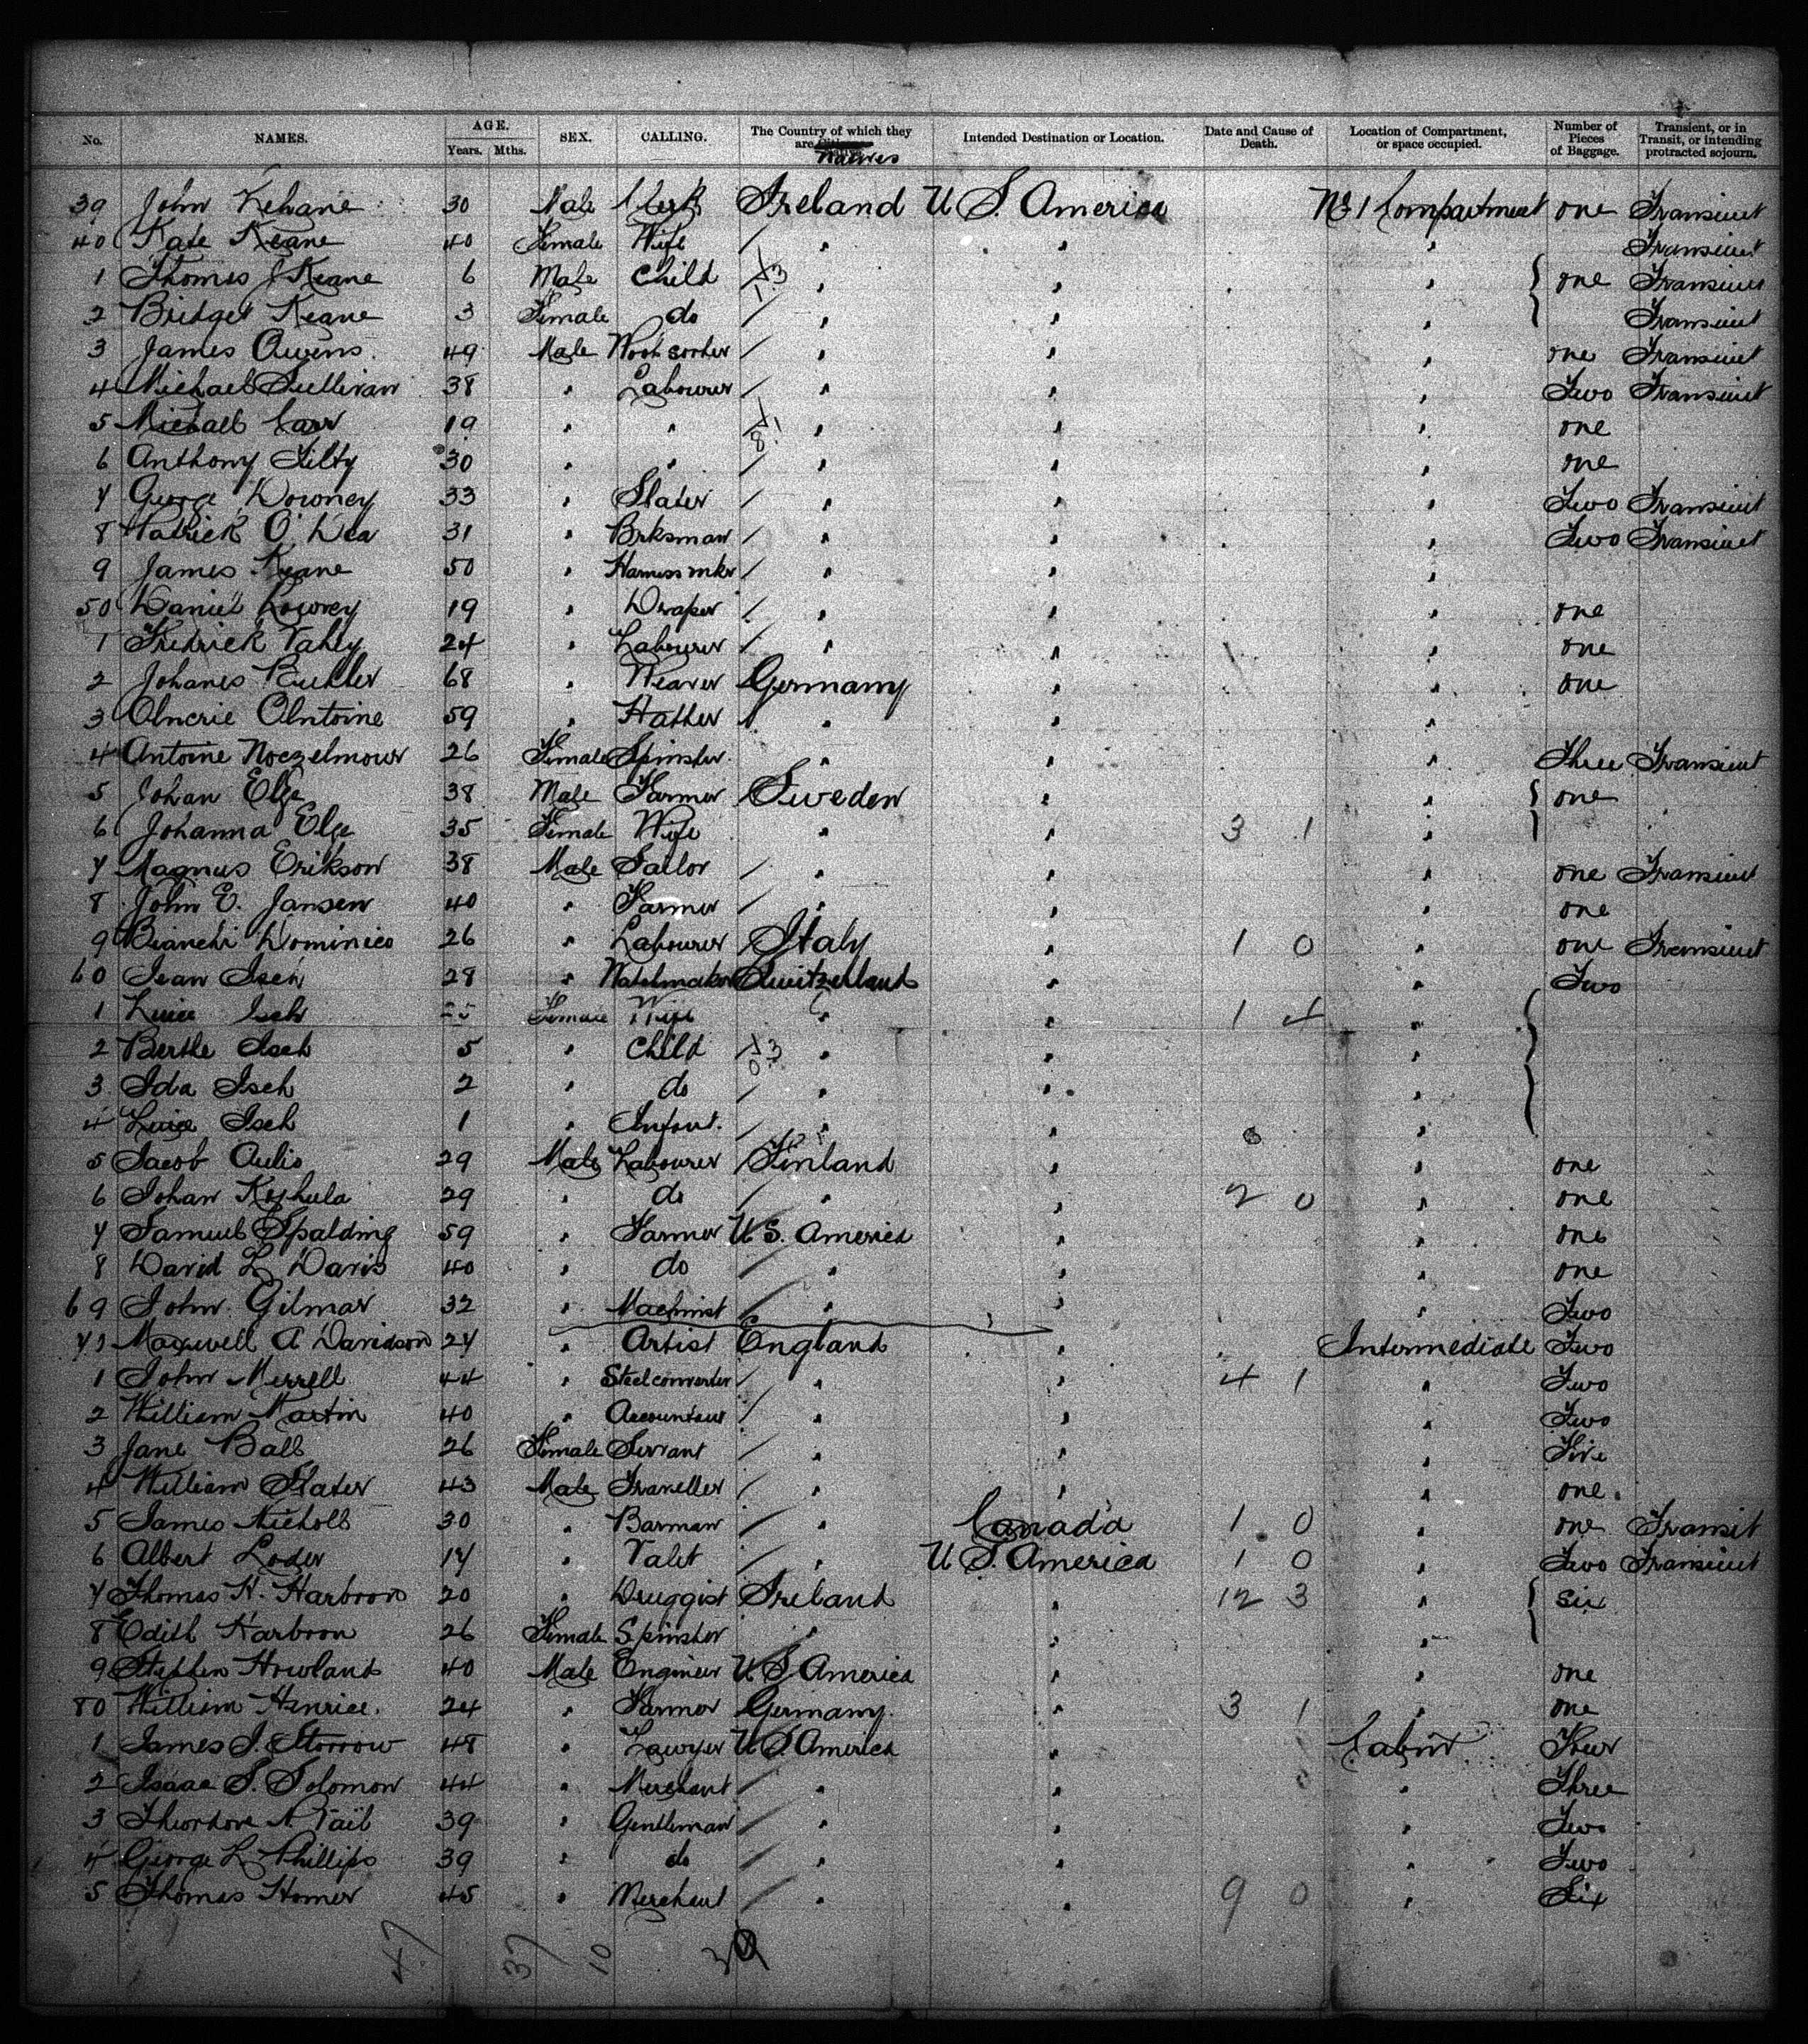 No. NAMES. AGE. Years. Mths. SEX. CALLING. The Country of which they are Natives Intended Destination or Location. Date and Cause of Death. Location of Compartment, or space occupied. Number of Pieces of Baggage. Transient, or in Transit, or intending protracted sojourn.
39 John Kehane 30 Male Clerk Ireland U S. America No 1 Compartment one Transient
40 Kate Keane 40 Female Wife / " " " Transient
1 Thomas J Keane 6 Male Child " " " one Transient
2 Bridget Keane 3 Female do / " " " Transient
3 James Owens 49 Male Wool sorter / " " " one Transient
4 Michael Sullivan 38 " Labourer / " " " Two Transient
5 Michael Carr 19 " " " " " one
6 Anthony Tilty 30 " " / " " " one
7 George Downey 33 " Slater / " " " Two Transient
8 Patrick O'Dea 31 " Brksman / " " " Two Transient
9 James Keane 50 " Harness mkr / " " "
50 Daniel Lowrey 19 " Draper / " " " one
1 Fredrick Vahly 24 " Labourer / " " " one
2 Johanes 68 " Weaver Germany " " one
3 Antoine 59 " Hatter " " "
4 Antoine 26 Female Spinster " " " Three Transient
5 Johan Elge 38 Male Farmer Sweden " " one
6 Johanna Elge 35 Female Wife " " 3 1 "
7 Magnus Erikson 38 Male Sailor / " " " one Transient
8 John E. Jansen 40 " Farmer / " " " one
9 Bianchi Dominico 26 " Labourer Italy " 1 0 " one Transient
60 Jean Isch 28 " Watchmaker Switzerland " " Two
1 Isch 25 Female Wife " " 1 4 "
2 Berthe Isch 5 " Child " " "
3 Ida Isch 2 " do / " " "
4 Isch 1 " Infant. / " " "
5 Jacob Aulio 29 Male Labourer Finland " " one
6 Johan 29 " do / " " 2 0 " one
7 Samuel Spalding 59 " Farmer U S. America " " one
8 David L Davis 40 " do / " " " one
69 John Gilmar 32 " Machinist / " " " Two
Maxwell A Davidson 24 " Artist England " Intermediate Two
1 John Merrell 44 " Steel converter / " " 4 1 " Two
2 William Martin 40 " Accountant / " " " Two
3 Jane Ball 26 Female Servant / " " " Five
4 William Slater 43 Male Traveller / " " " one
5 James Nicholl 30 " Barman / " Canada 1 0 " one Transit
6 Albert Loder 17 " Valet / " U S. America 1 0 " Two Transient
7 Thomas H. Harbron 20 " Druggist Ireland " 12 3 " Six
8 Edith Harbron 26 Female Spinster " " "
9 Stephen Howland 40 Male Engineer U S America " " one
80 William Henrice. 24 " Farmer Germany. " 3 1 " one
1 James J. Storrow 48 " Lawyer U S. America " Cabin Four
2 Isaac S. Solomon 44 " Merchant / " " " Three
3 Theodore N. Vail 39 " Gentleman / " " " Two
4 George L Phillips 39 " do / " " " Two
5 Thomas Homer 45 " Merchant / " " 9 0 " Six
47 37 10